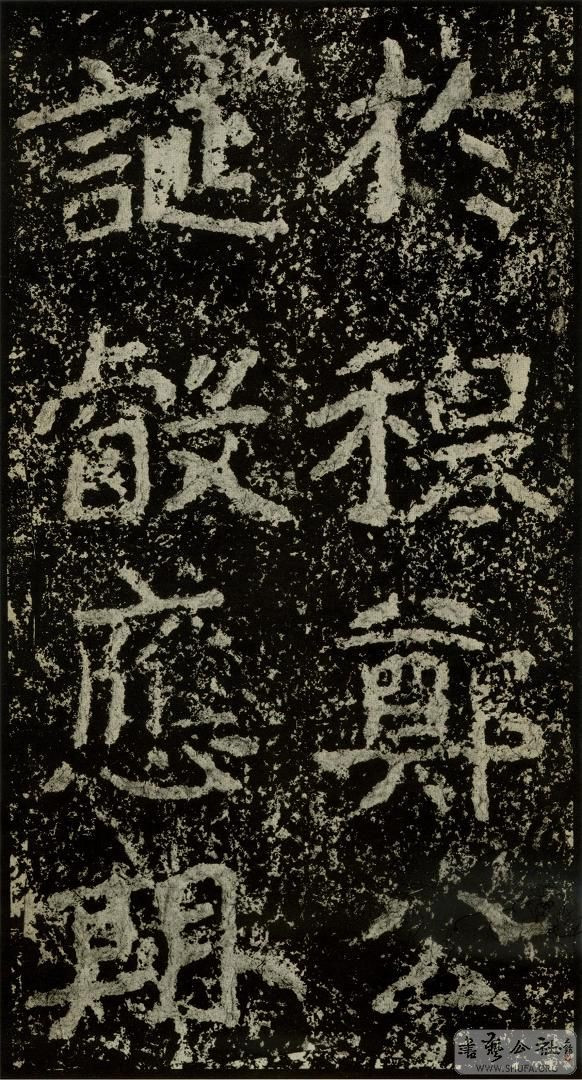 於穆鄭公
誕叡應期
書藝公社
WWW.SHUFA.ORG